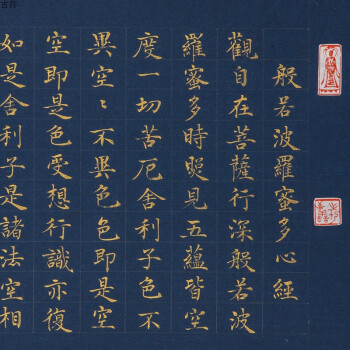 般若波羅蜜多心經
觀自在菩薩行深般若波
羅蜜多時照見五蘊皆空
度一切苦厄舍利子色不
異空空不異色色即是空
空即是色受想行識亦復
如是舍利子是諸法空相